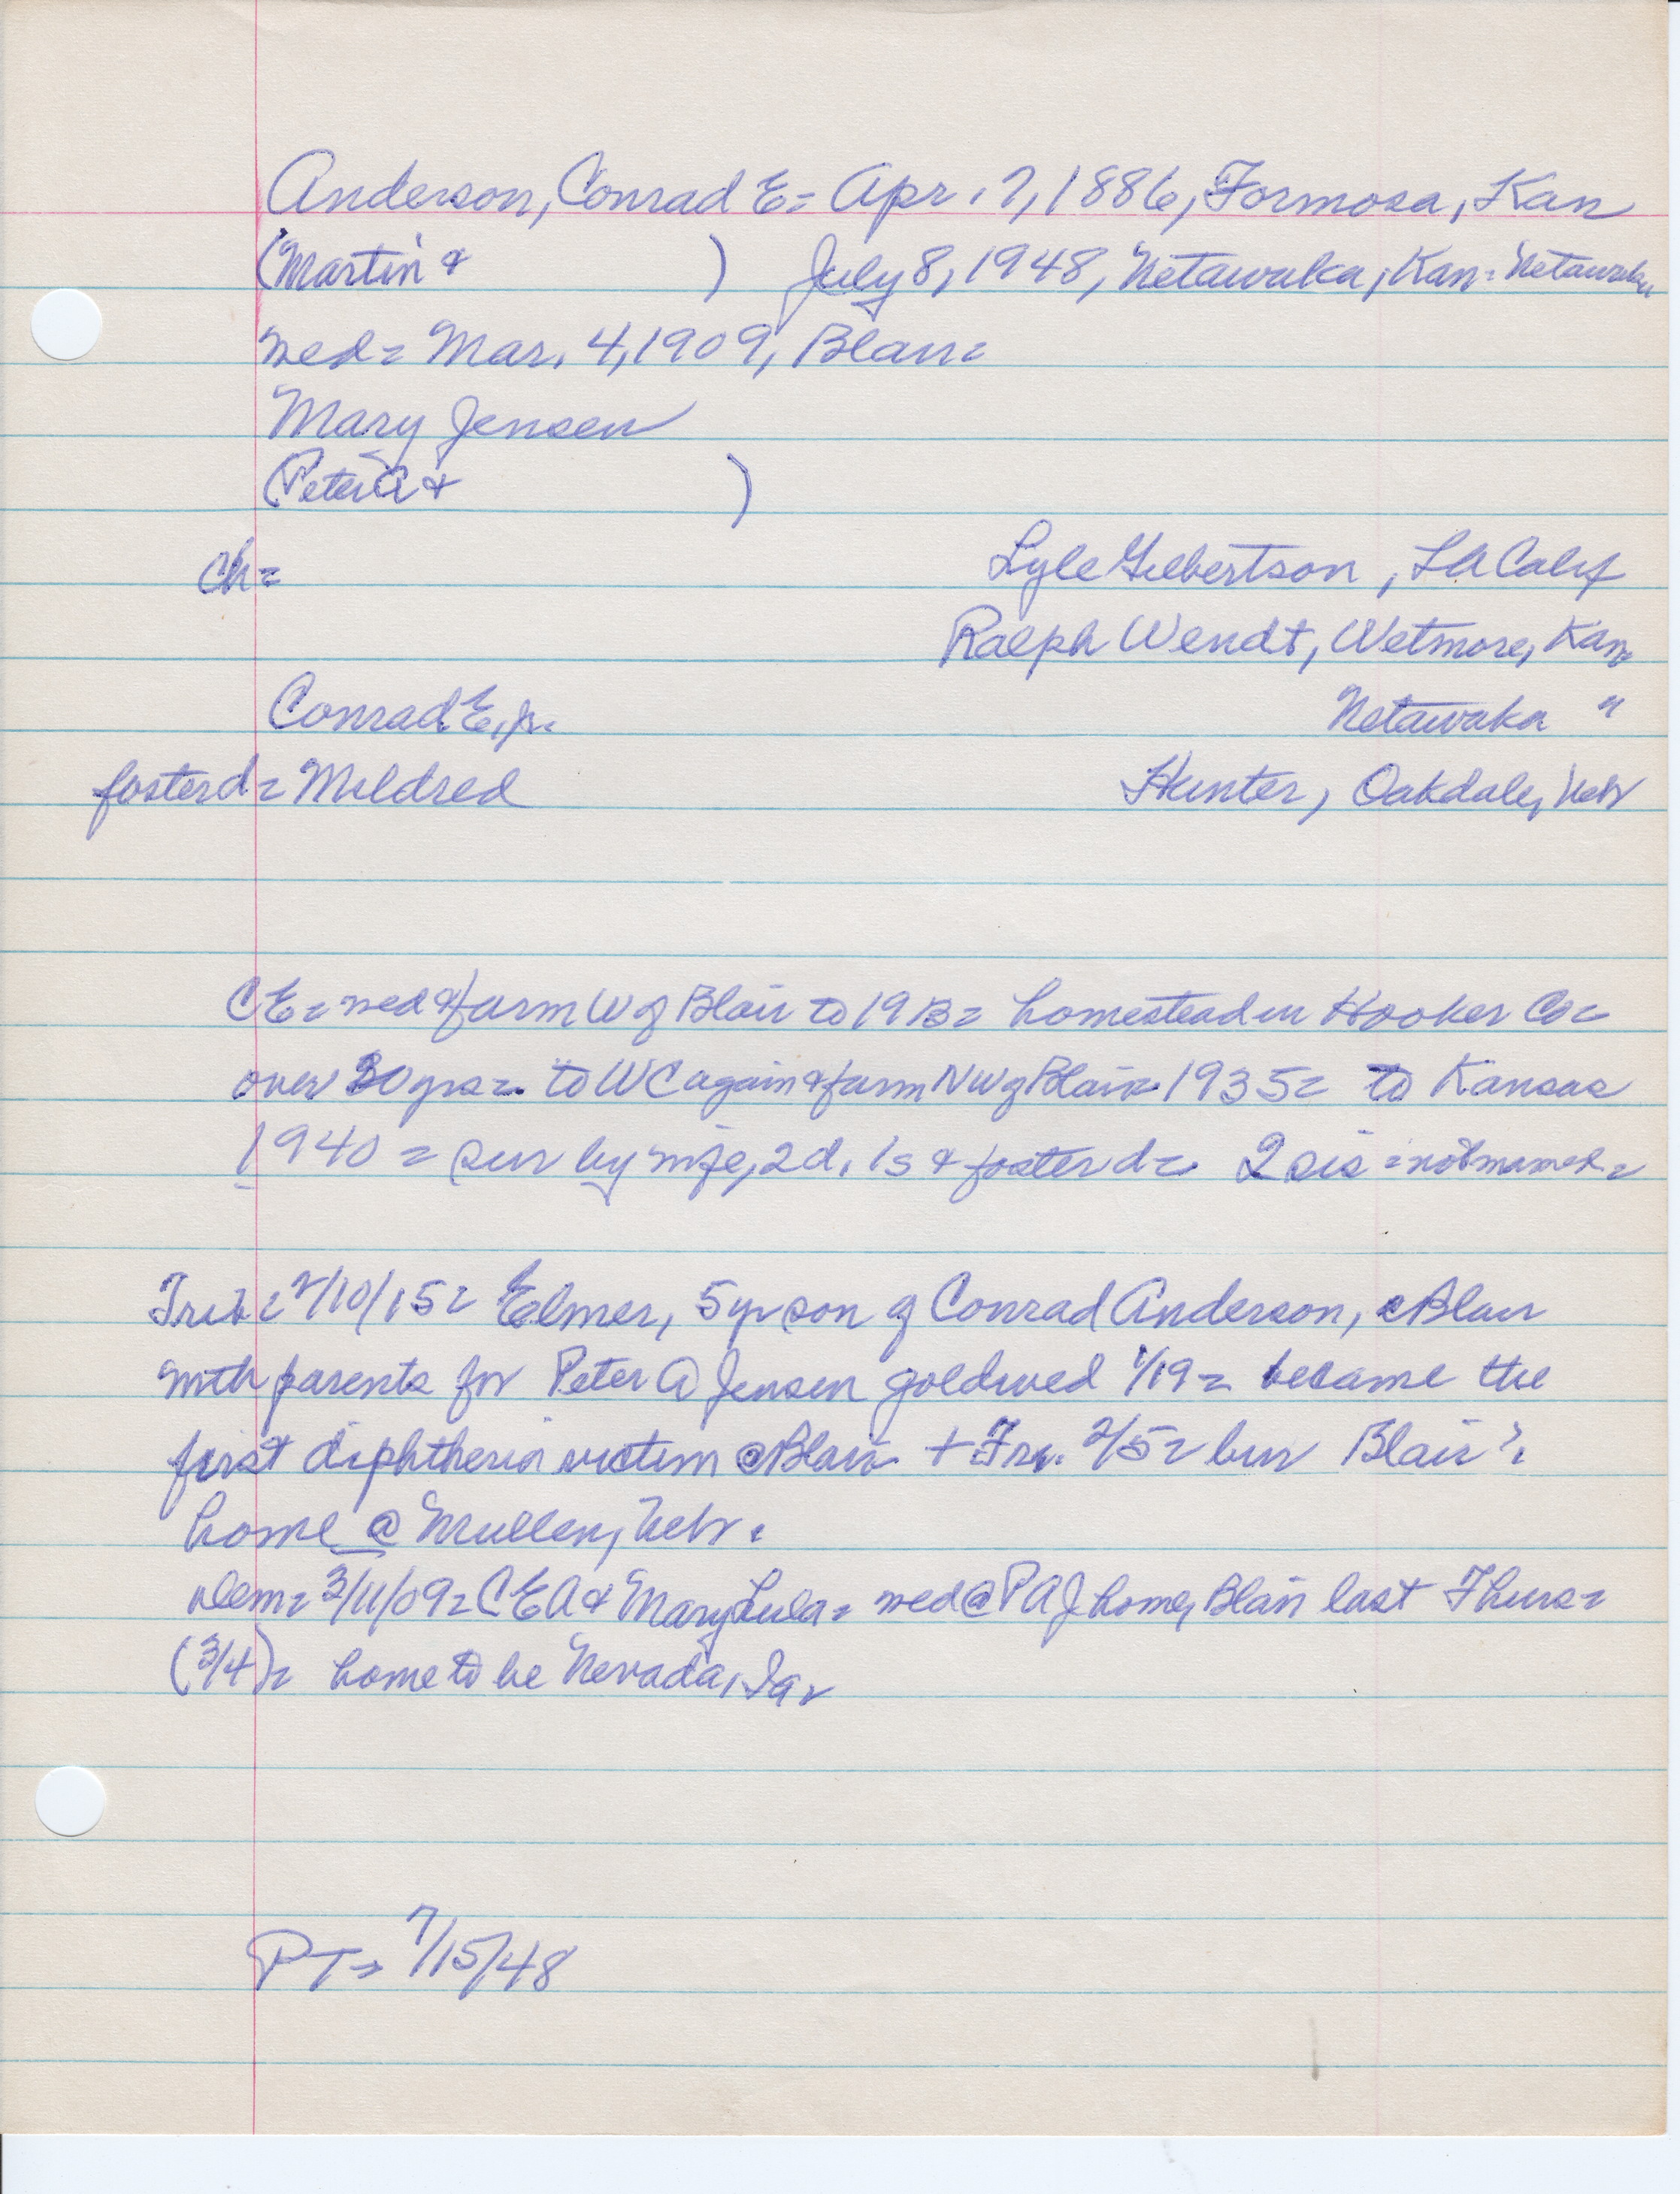 Anderson, Conrad E= Apr. 7, 1886, Formosa, Kan
(Martin & ) July 8, 1948, Netawaka, Kan= Netawaka
wed= Mar. 4, 1909, Blair=
Mary Jensen
(Peter A & )
ch= Lyle Gilbertson, LA Calif
Ralph Wendt, Wetmore, Kan
Conrad E, jr. Netawaka "
foster d= Mildred Hunter, Oakdale, Nebr
CE= wed & farm W of Blair to 1913= homestead in Hooker Co=
over 20 yrs= to WC again & farm NW of Blair 1935= to Kansas
1940= sur by wife, 2d, 1s & foster d= 2 sis = not named=
Trib= 2/10/15= Elmer, 5 yr son of Conrad Anderson, @ Blair
with parents for Peter A Jensen gold wed 1/19= became the
first diphtheria victim @ Blair + Fri. 2/5= bur Blair?
home @ Mullen, Nebr.
Dem= 3/11/09= CEA & Mary Lula= wed @ PAJ home, Blair last Thurs=
(3/4)= home to be Nevada, Ia=
PT= 7/15/48